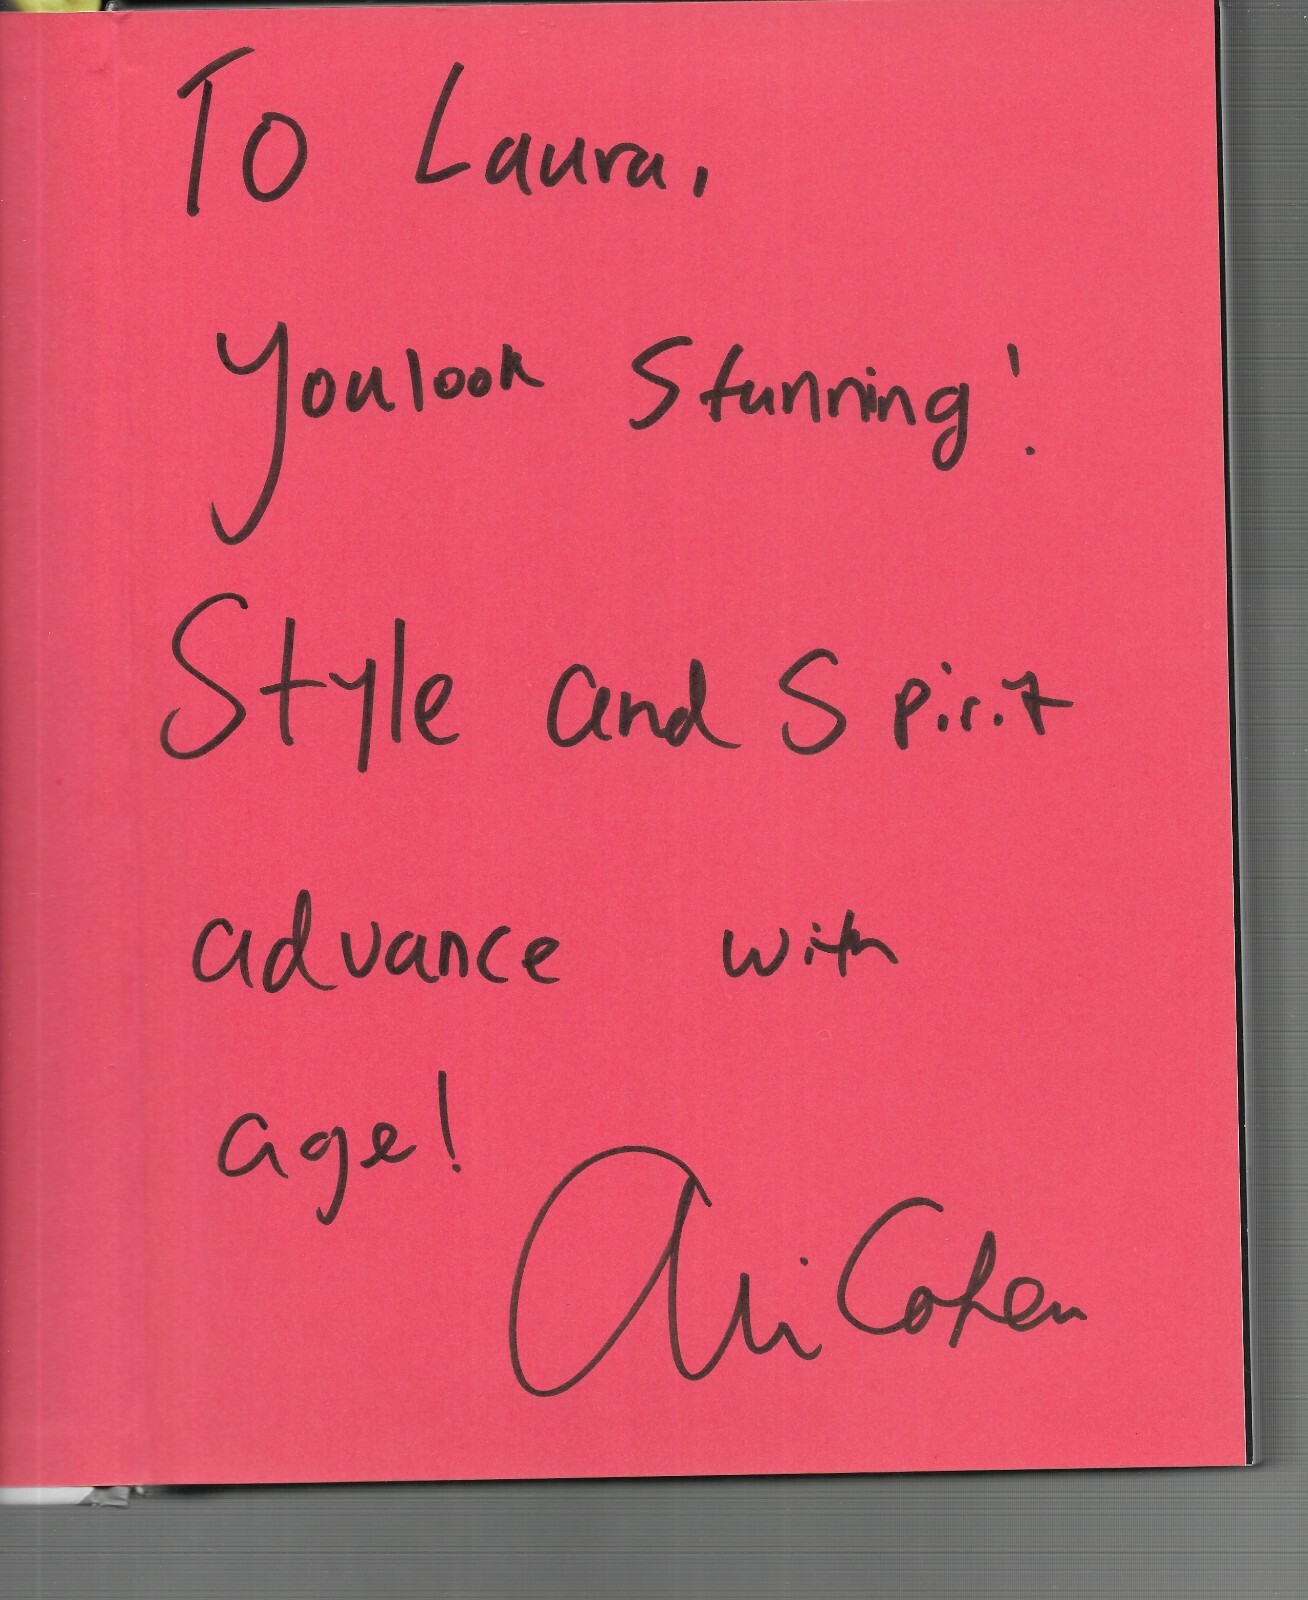 To Laura,
You look Stunning!
Style and Spirit
advance with
age!
Ari Cohen